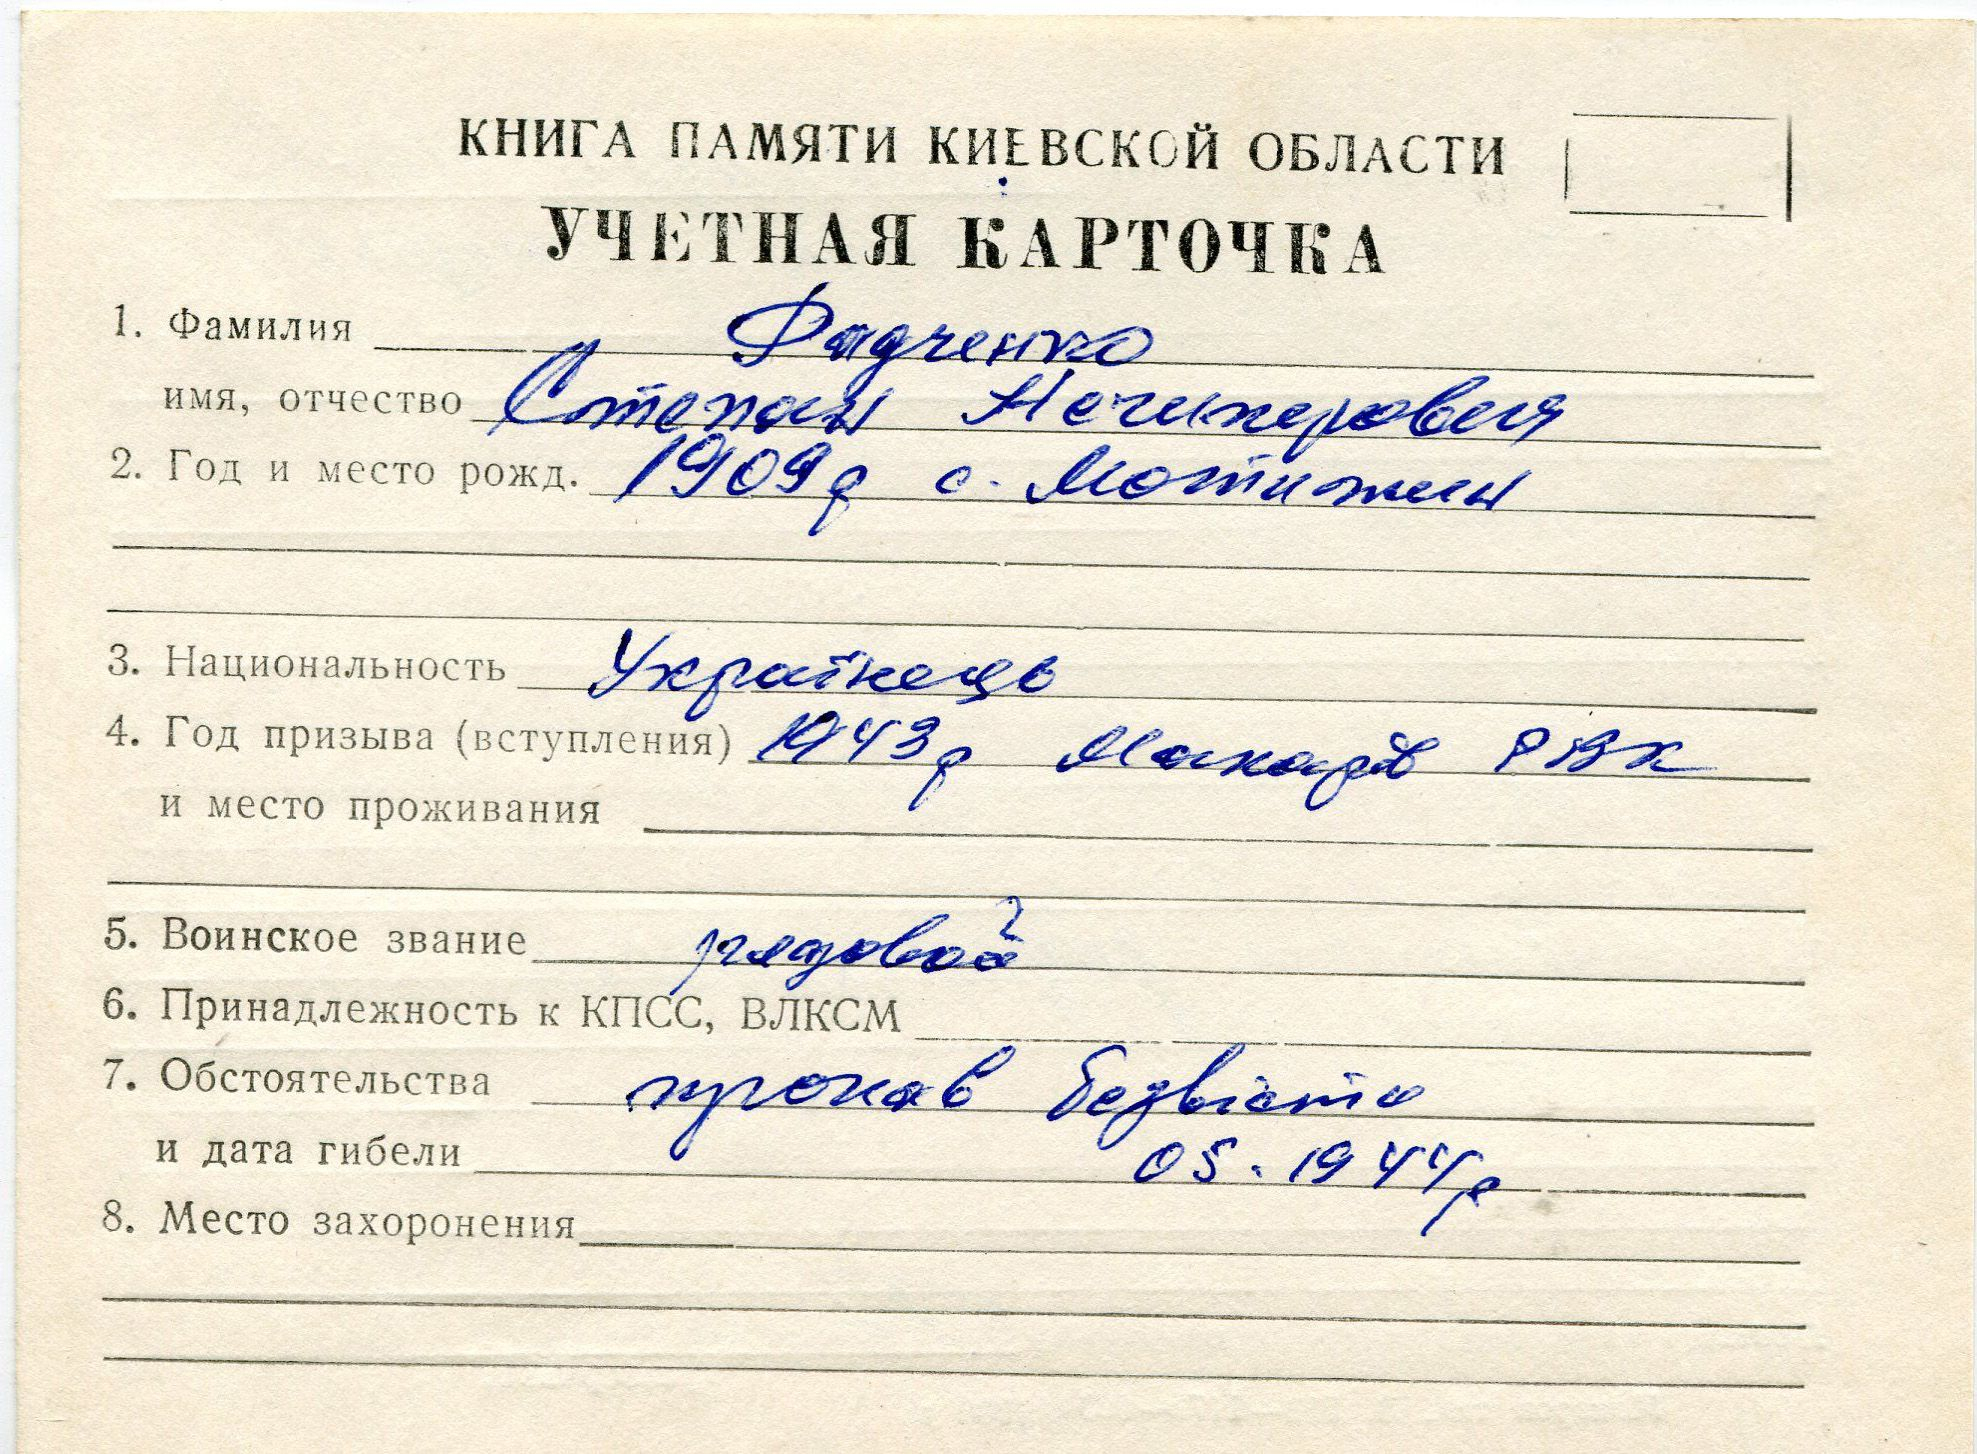 КНИГА ПАМЯТИ КИЕВСКОЙ ОБЛАСТИ
УЧЕТНАЯ КАРТОЧКА
1. Фамилия Фадченко
имя, отчество Степан Нечипорович
2. Год и место рожд. 1909р с. Мотижин
3. Национальность Українець
4. Год призыва (вступления) 1943р Макарів РВК
и место проживания
5. Воинское звание рядовой
6. Принадлежность к КПСС, ВЛКСМ
7. Обстоятельства пропав безвісти
и дата гибели 05.1944р
8. Место захоронения